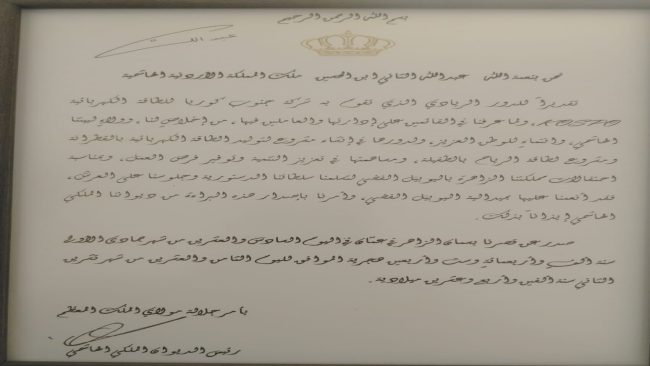 بسم الله الرحمن الرحيم
عبدالله
نحن بنعمة الله عبدالله الثاني ابن الحسين ملك المملكة الأردنية الهاشمية
تقديراً للدور الريادي الذي تقوم به شركة جنوب كوريا للطاقة الكهربائية
KOSPO، ولما عرفنا في القائمين على إدارتها والعاملين فيها، من إخلاصٍ لنا، وولاءٍ لبيتنا
الهاشمي، وانتماءٍ للوطن العزيز، ولدورها في إنشاء مشروع لتوليد الطاقة الكهربائية بالقطرانة
ومشروع لطاقة الرياح بالطفيلة، ومساهمتها في تعزيز التنمية وتوفير فرص العمل، وبمناسبة
احتفالات مملكتنا الزاهرة باليوبيل الفضي لتسلمنا سلطاتنا الدستورية وجلوسنا على العرش،
فقد أنعمنا عليها بميدالية اليوبيل الفضي، وأمرنا بإصدار هذه البراءة من ديواننا الملكي
الهاشمي إيذاناً بذلك.
صدر عن قصرنا بسمان الزاهر في عمّان في اليوم السادس والعشرين من شهر جمادى الأولى
سنة ألف وأربعمائة وست وأربعين هجرية الموافق لليوم الثامن والعشرين من شهر تشرين
الثاني سنة ألفين وأربع وعشرين ميلادية.
بأمر جلالة مولاي الملك المعظم
رئيس الديوان الملكي الهاشمي